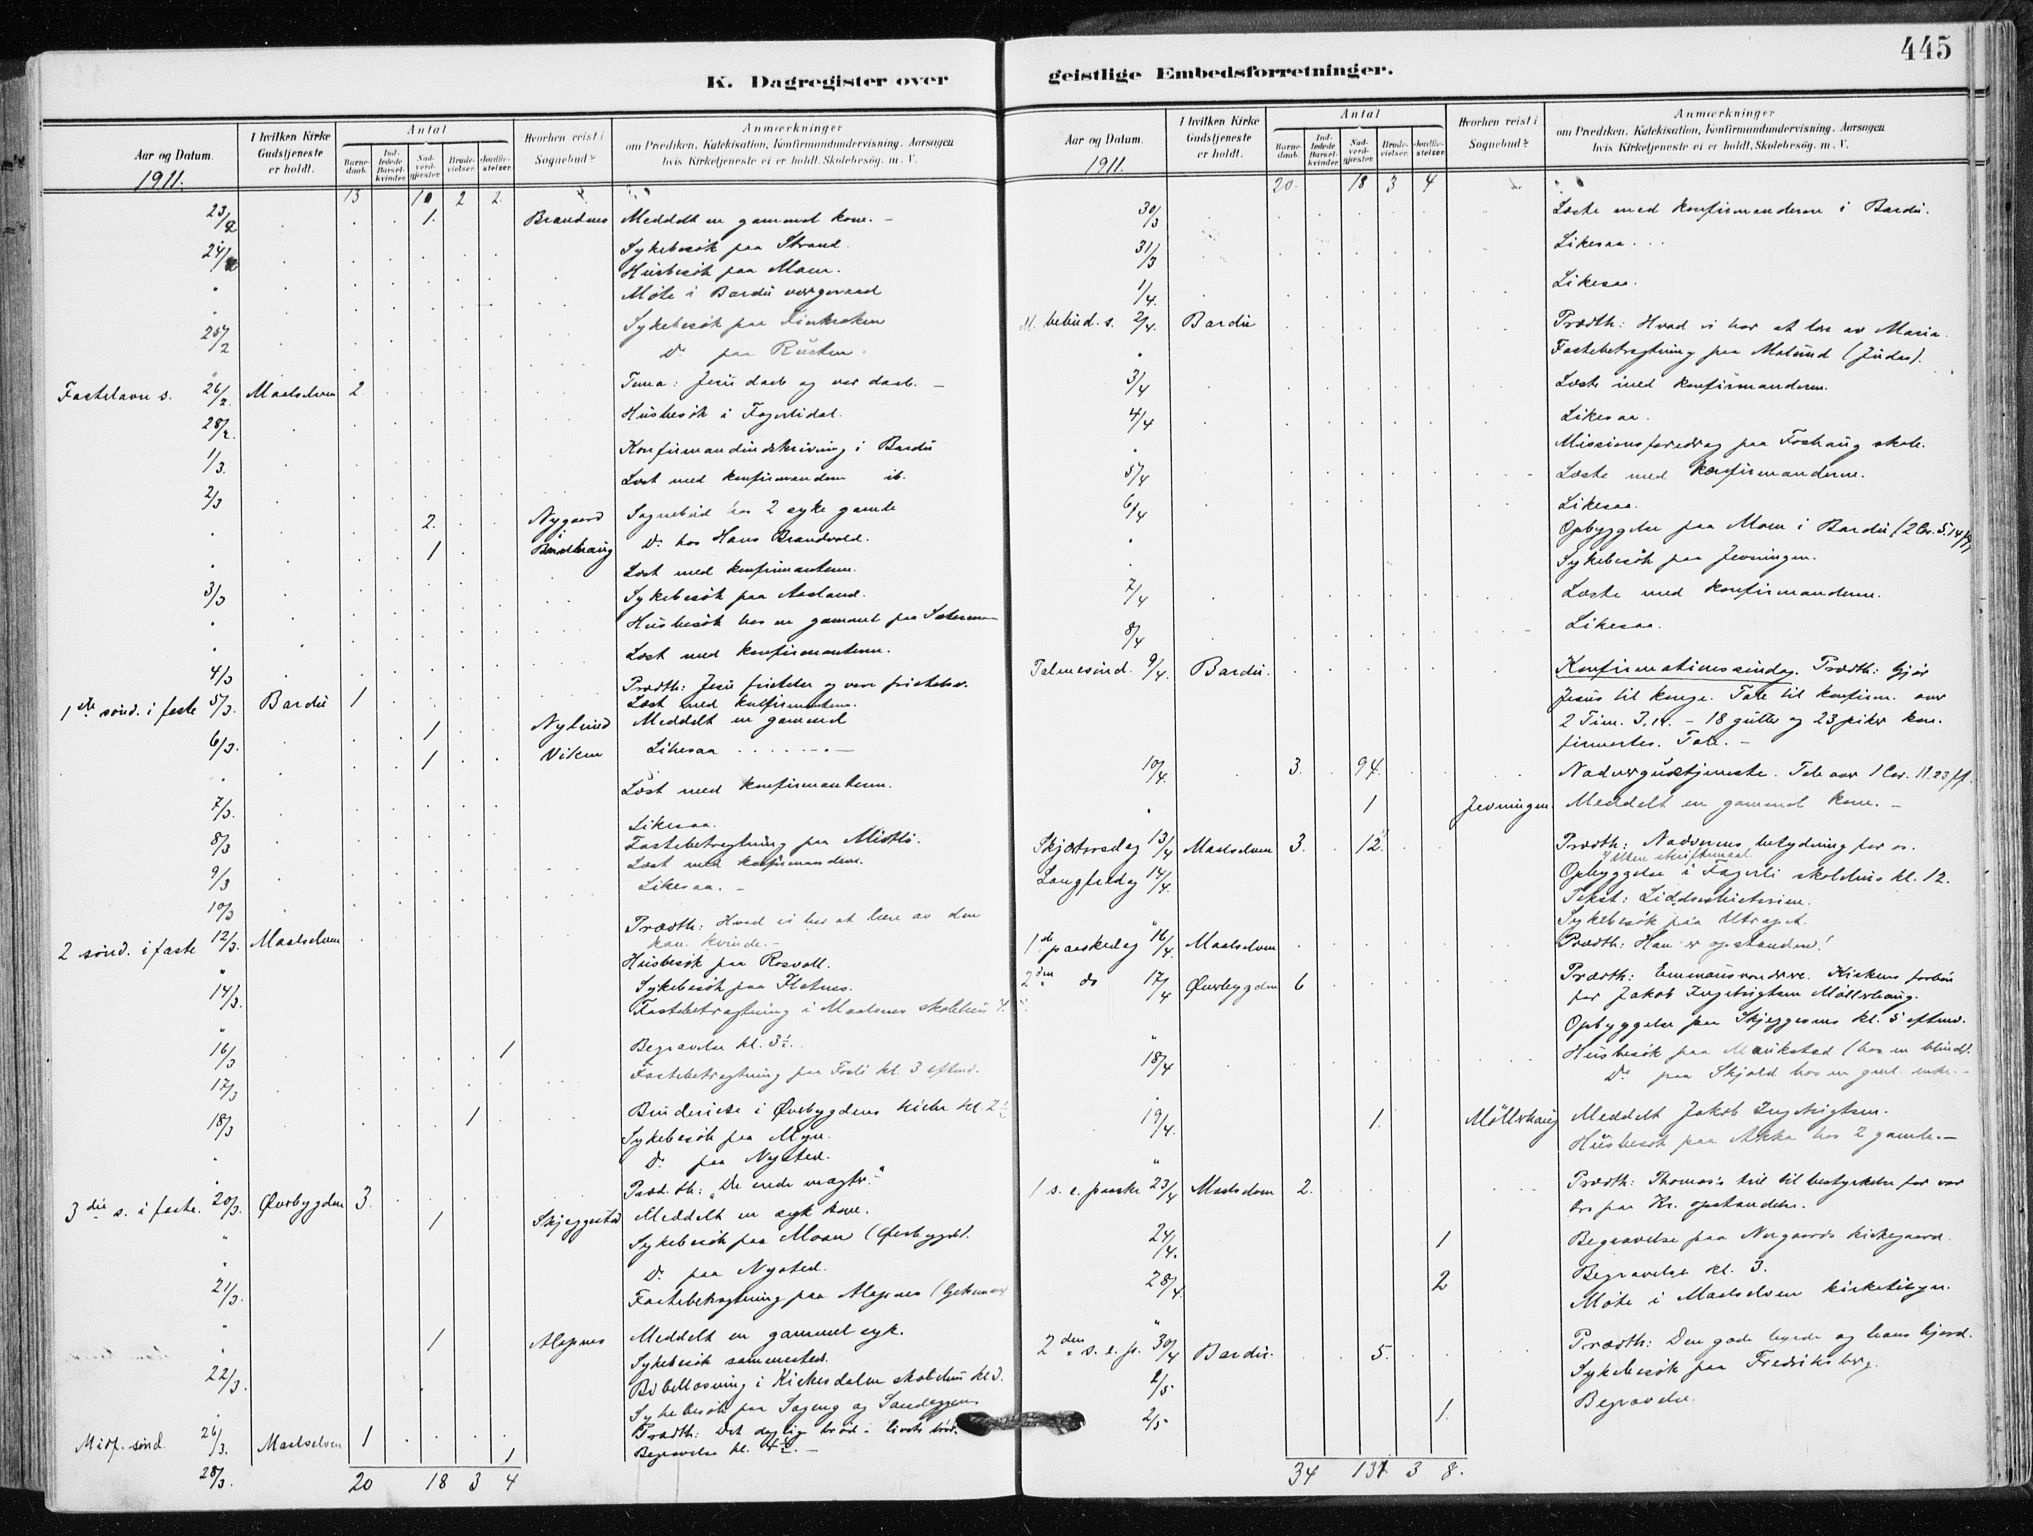 445
K. Dagregister over
geistlige Embedsforretninger.
Aar og Datum.
1911.
I hvilken Kirke Gudstjeneste er holdt.
Antal
Barnedaab.
Indledede Barselkvinder.
Nadverdgjæster.
Brudevielser.
Jordfæstelser.
Hvorhen reist i Sognebud?
Anmærkninger
om Prædiken, Katekisation, Konfirmandundervisning, Aarsagen
hvis Kirketjeneste ei er holdt, Skolebesøg, m. V.
13 10 2 2
23/2 1. Brandnes Meddelt en gammel kone. -
24/2 Sykebesök paa Strand.
Husbesök paa Moen.
Møte i Bardu vergeraad
25/2 Sykebesök paa
Do paa Rusten.
Fastelavn s. 26/2 Maalselven 2. Tema: Jesu daab og vor daab. -
28/2. Husbesök i Fagerlidal.
1/3. Konfirmandindskrivning i Bardu
2/3 Læst med konfirmanderne ib.
2. Nygaard Sognebud hos 2 syke gamle
1 Do hos Hans Brandvold.
Læst med konfirmanterne.
3/3 Sykebesök paa Aasland.
Husbesök hos en gammel paa
Læst med konfirmanterne.
4/3
1ste sönd. i faste 5/3. Bardu 1 Prædth: Jesu fristelse og vore fristelser.
Læst med konfirmanterne.
6/3. 1 Nylund Meddelt en gammel
1 Viken Likesaa
Læst med konfirmanterne.
7/3. Likesaa.
8/3 Fastebetragtning paa
Læst med konfirmanderne.
9/3 Likesaa. -
10/3
2 sönd. i faste 12/3. Maalselven Prædth: Hvad vi har at lære av den
kan. kvinde. -
Husbesök paa Rosvoll.
14/3. Sykebesök paa Fletnes.
Fastebetragtning i Maalsnes skolehus
16/3 1 Begravelse kl. 3½.
17/3 Fastebetragtning paa Fosli kl. 3 eftmd.
18/3 1 Brudevielse i Øverbygdens kirke kl. 2½
Sykebesök paa Moen.
Do paa Nysted.
3die s. i faste. 20/3. Øverbygden 3. Præd.th: "De onde magter."
1 Skjeggestad Meddelt en syk kone.
Sykebesök paa Moan (Øverbygd).
Do paa Nysted.
21/3. Fastebetragtning paa Alapnes
1 Alapnes Meddelt en gammel syk.
Sykebesök sammesteds.
22/3. Bibellæsning i Kirkesdalen skolehus
Sykebesök paa og Sandeggen
Midf. sönd. 26/3. Maalselven 1 Prædth: Det daglige bröd - livets bröd.
28/3. 1 Begravelse kl. -
20 18 3 4
Aar og Datum.
1911.
I hvilken Kirke Gudstjeneste er holdt.
Antal
Barnedaab.
Indledede Barselkvinder.
Nadverdgjæster.
Brudevielser.
Jordfæstelser.
Hvorhen reist i Sognebud?
Anmærkninger
om Prædiken, Katekisation, Konfirmandundervisning, Aarsagen
hvis Kirketjeneste ei er holdt, Skolebesøg, m. V.
20. 18 3 4
30/3 Læste med konfirmanderne i Bardu.
31/3 Likesaa
1/4. Likesaa.
M. bebud. s. 2/4. Bardu Prædth: Hvad vi har at lære av Maria.
Fastebetragtning paa Molund (Judas).
3/4 Læste med konfirmanderne.
4/4 Likesaa.
Missionsforedrag paa Foshaug skole.
5/4 Læste med konfirmanderne.
6/4 Likesaa.
Opbyggelse paa Moen i Bardu (2 Cor. 5.14 ff)
Sykebesök paa Jevningen.
7/4 Læste med konfirmanderne.
8/4 Likesaa.
Palmesönd. 9/4. Bardu. Konfirmationssöndag. Prædth: Gjör
Jesus til konge. Tale til konfirm. over
2 Tim. 3.14. - 18 gutter og 23 piker kon-
firmertes. Tale. -
10/4. 3. 94. Nadvergudstjeneste. Tale over 1 Cor. 11.23 ff.
1 Jevningen. Meddelt en gammel kone. -
Skjærtorsdag 13/4 Maalselven 3. 12. Prædth: Nadverens betydning for os.
Langfredag 14/4. Opbyggelse i Fagerli skolehus kl. 12.
Tekst: Lidelseshistorien.
Sykebesök paa
1ste paaskedag 16/4 Maalselven Prædth: Han er opstanden!
2den do 17/4 Øverbygden 6 Prædth: Emmausvandrerne. Kirkens forbön
for Jakob Ingebrigtsen Möllerhaug.
Opbyggelse paa Skjeggesnes kl. 5 eftmd.
18/4 Husbesök paa (hos en blind).
Do paa Skjold hos en gml. enke. -
19/4. 1. Möllerhaug Meddelt Jakob Ingebrigtsen.
Husbesök paa Akka hos 2 gamle. -
1 s. e. paaske 23/4 Maalselven 2. Prædth: Thomas's tvil til bestyrkelse for vor
tro paa Kr. opstandelse.
24/4. 1 Begravelse paa kirkegaard.
28/4. 2 Begravelse kl. 3.
Møte i Maalselven kirketilsyn.
2den s. e. p. 30/4 Bardu. 5. Prædth: Den gode hyrde og hans hjord.
2/5. Sykebesök paa Fredriksberg.
2/5 1. Begravelse.
34 131 3 8.